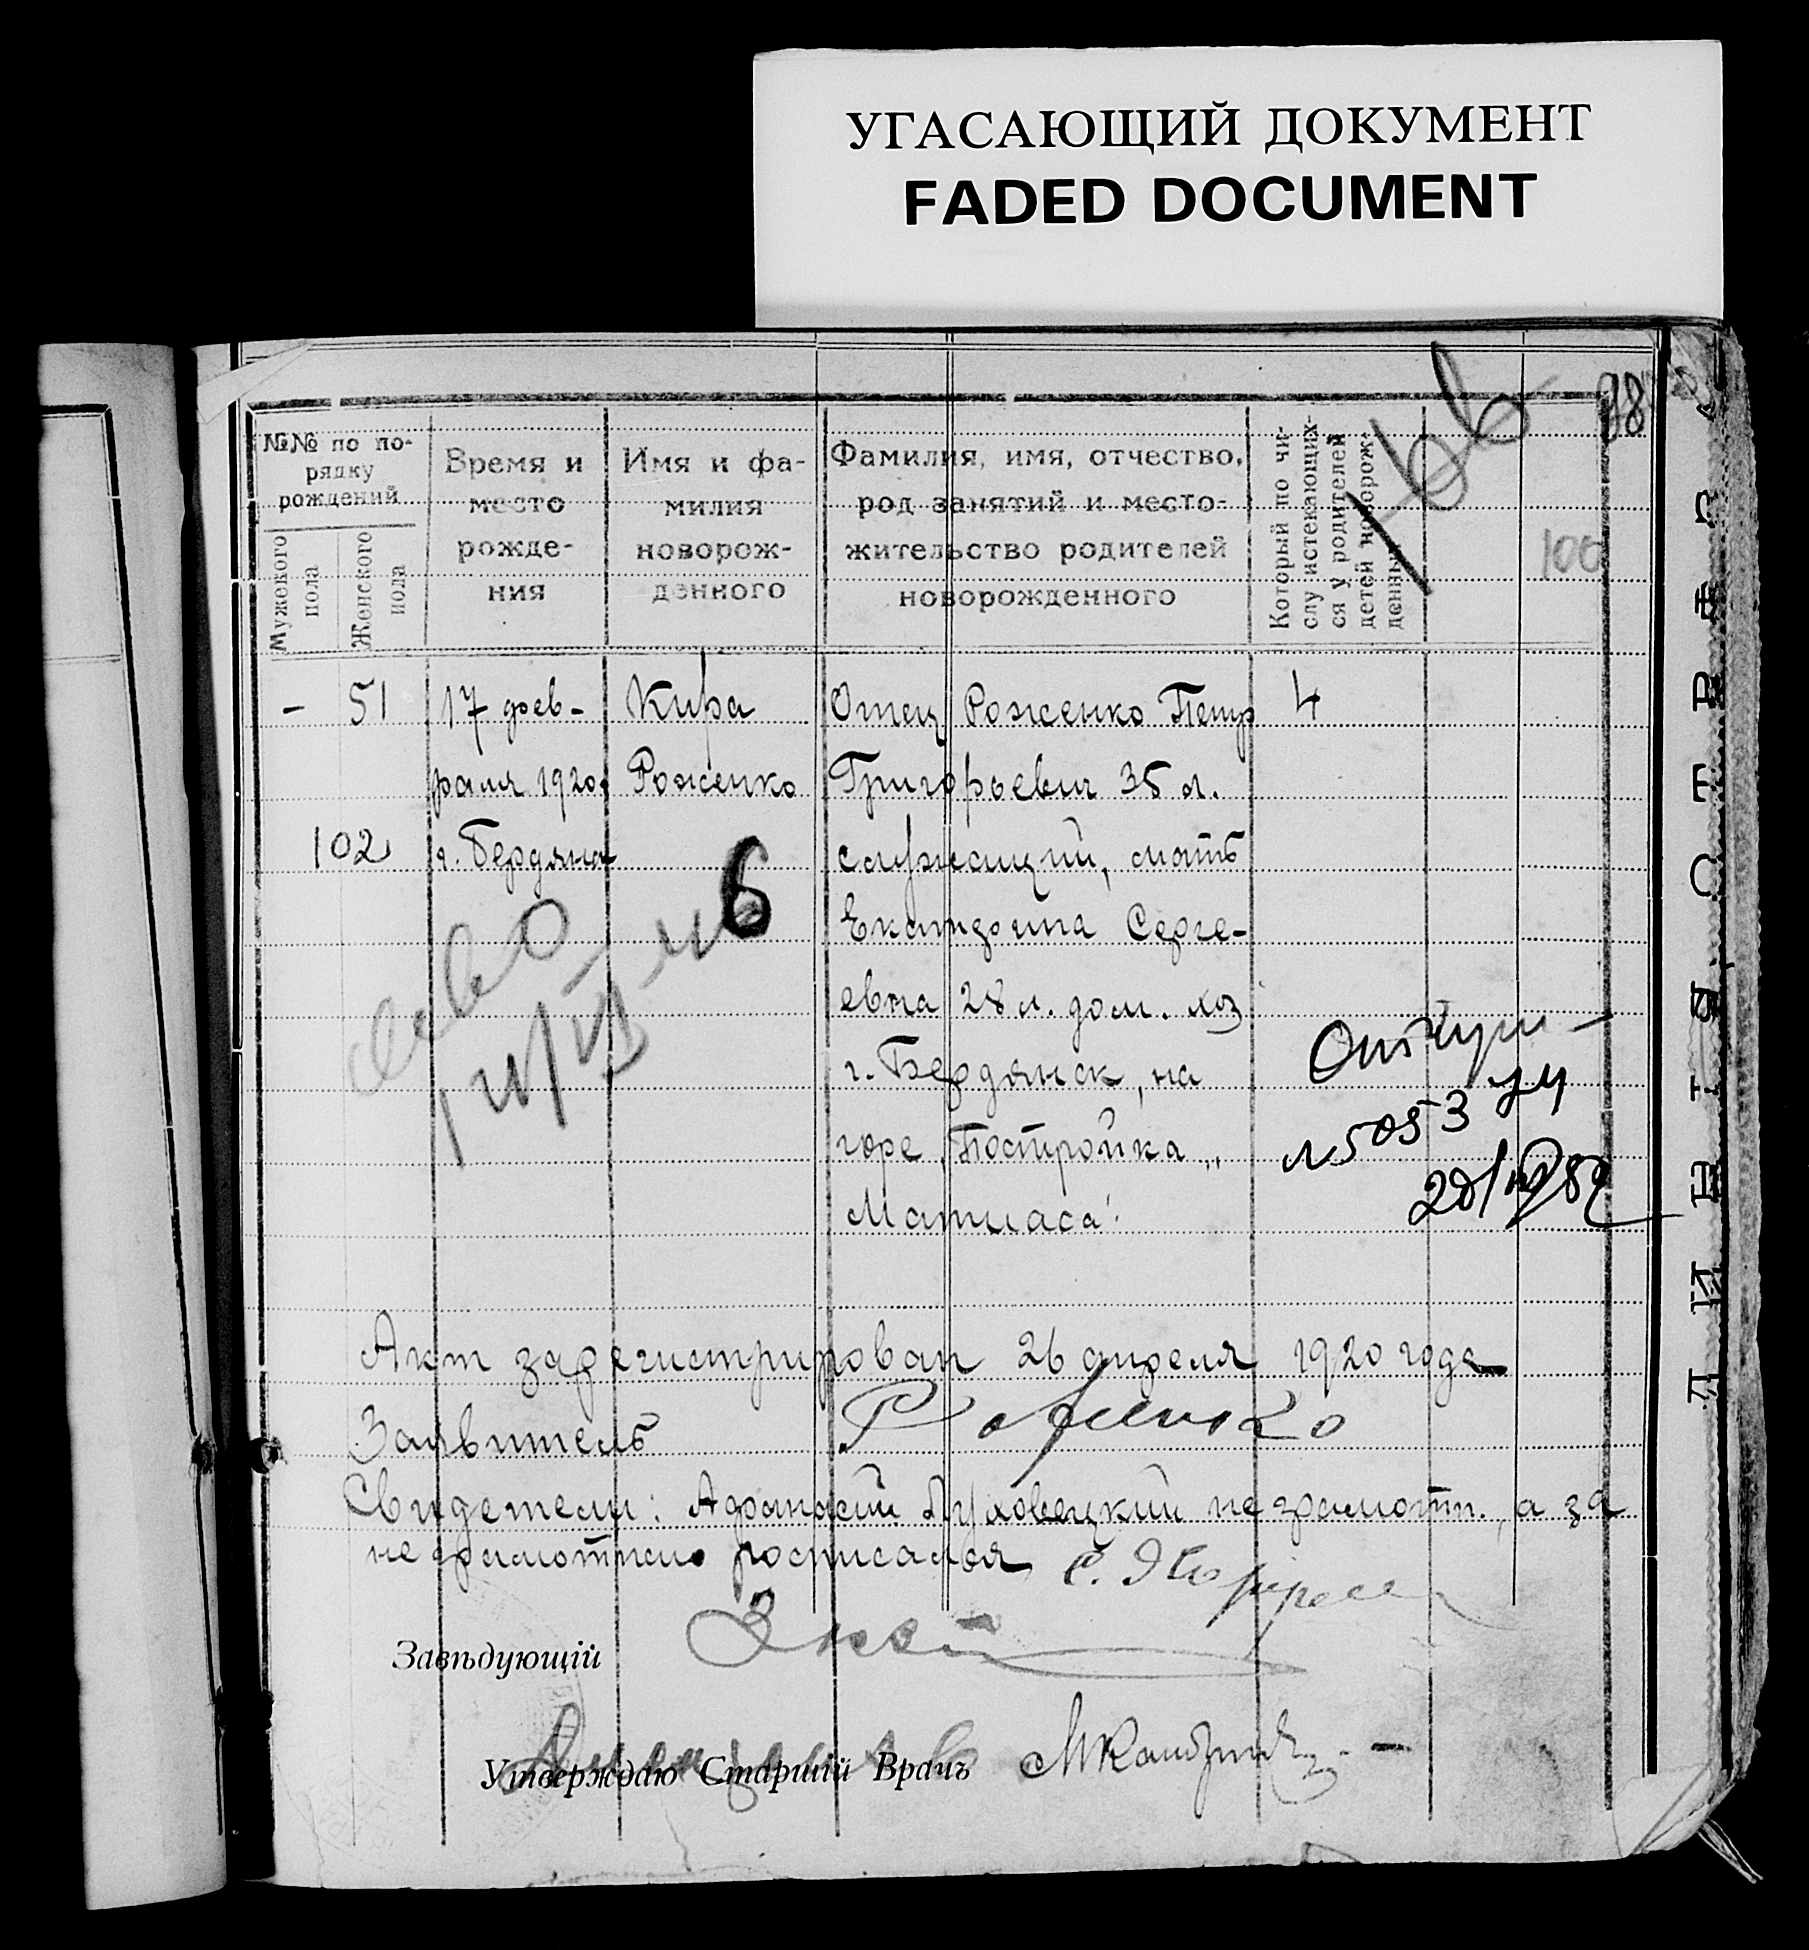 УГАСАЮЩИЙ ДОКУМЕНТ
FADED DOCUMENT
98
100
№№ по по-
рядку
рождений
Мужского
пола
Женского
пола
Время и
место
рожде-
ния
Имя и фа-
милия
новорож-
денного
Фамилия, имя, отчество,
род занятий и место-
жительство родителей
новорожденного
Который по чи-
слу истекающих-
ся у родителей
детей новорож-
денный
- 51
17 фев-
раля 1920г
г. Бердянск
102
Кира
Роженко
6
Отец Роженко Петр
Григорьевич 35 л.
служащий, мать
Екатерина Серге-
евна 28 л. дом. хоз
г. Бердянск, на
горе „Постройка„
Матиаса".
4
№5053
Акт зарегистрирован 26 апреля 1920 года
Заявитель Роженко
Свидетели: Афанасий Луховецкий неграмотн., а за
неграмотного росписался С.
Завѣдующій
Утверждаю Старшій Врачъ